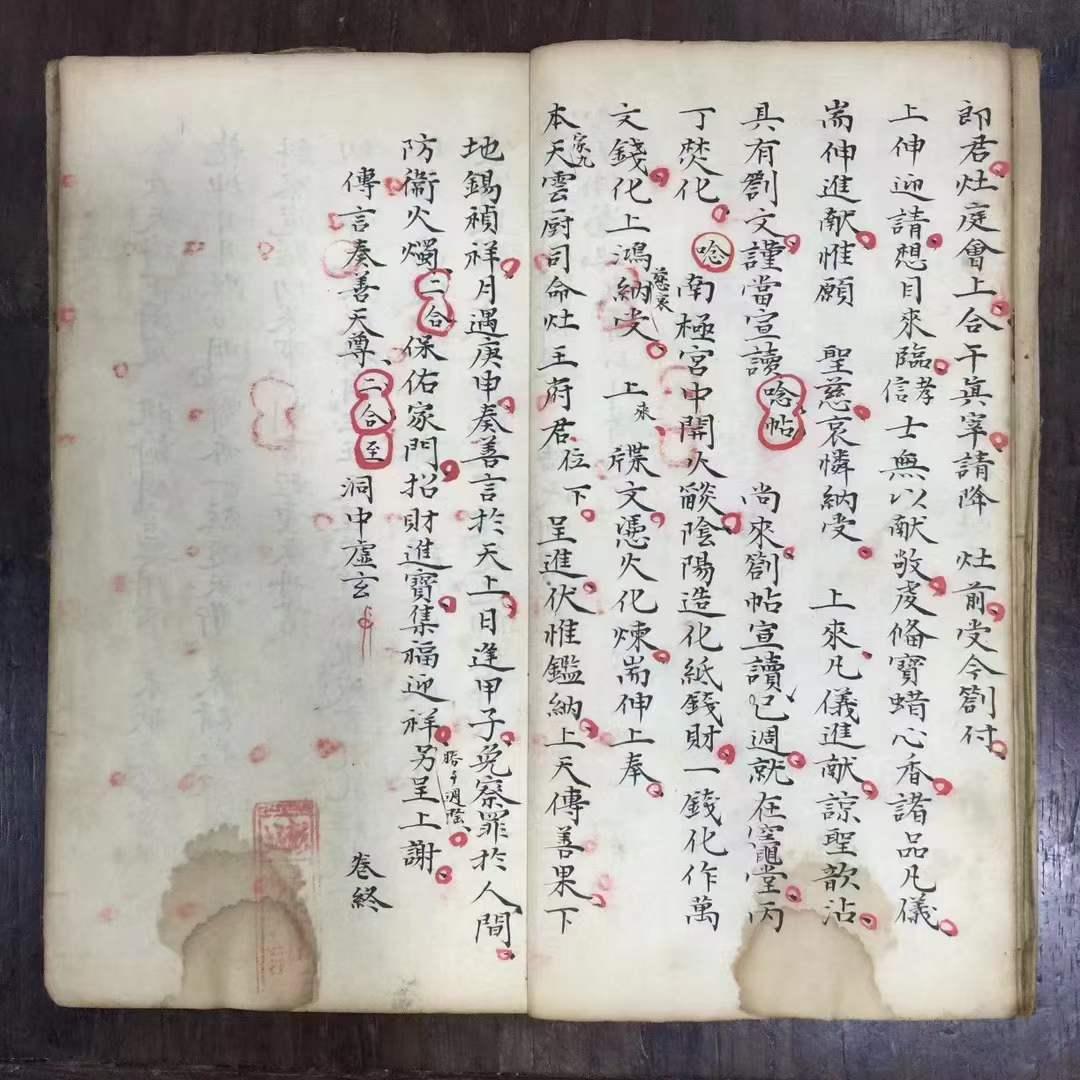 郎君灶庭會上合干真宰請降　灶前受今劄付
上伸迎請想目來臨孝信士無以献敬虔俻寶蜡心香諸品凡儀
耑伸進献惟願　聖慈哀憐納受　上來凡儀進献諒聖歆沾
具有劄文謹當宣讀唸帖　尚來劄帖宣讀已週就在竈堂丙
丁焚化　唸　南極宮中開火燄陰陽造化紙錢財一錢化作萬
文錢化上鴻慈哀納受　上來牒文憑火化煉耑伸上奉
本家九天雲厨司命灶王府君位下　呈進伏惟鑑納上天傳善果下
地錫禎祥月遇庚申奏善言於天上日逢甲子免察罪於人間
防衛火燭二合保佑家門招財進寶集福迎祥另呈上謝
傳言奏善天尊二合至　洞中虛玄
卷終